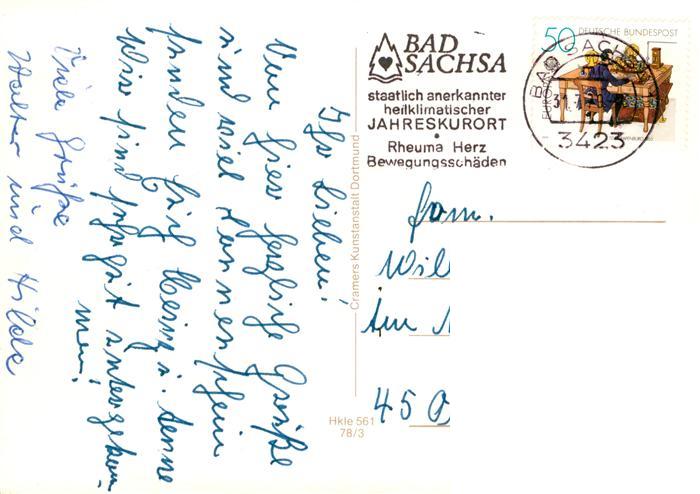 Ihr Lieben!
Von hier herzliche Grüße
und viel Sonnenschein
senden Euch
Wir sind sehr gut untergekom-
men!
Viele Grüße
Walter und Hilde
BAD
SACHSA
staatlich anerkannter
heilklimatischer
JAHRESKURORT
•
Rheuma Herz
Bewegungsschäden
50 DEUTSCHE BUNDESPOST
BAD SACHSA
3423
Cramers Kunstanstalt Dortmund
Fam.
Wil
Am
45 O
Hkle 561
78/3